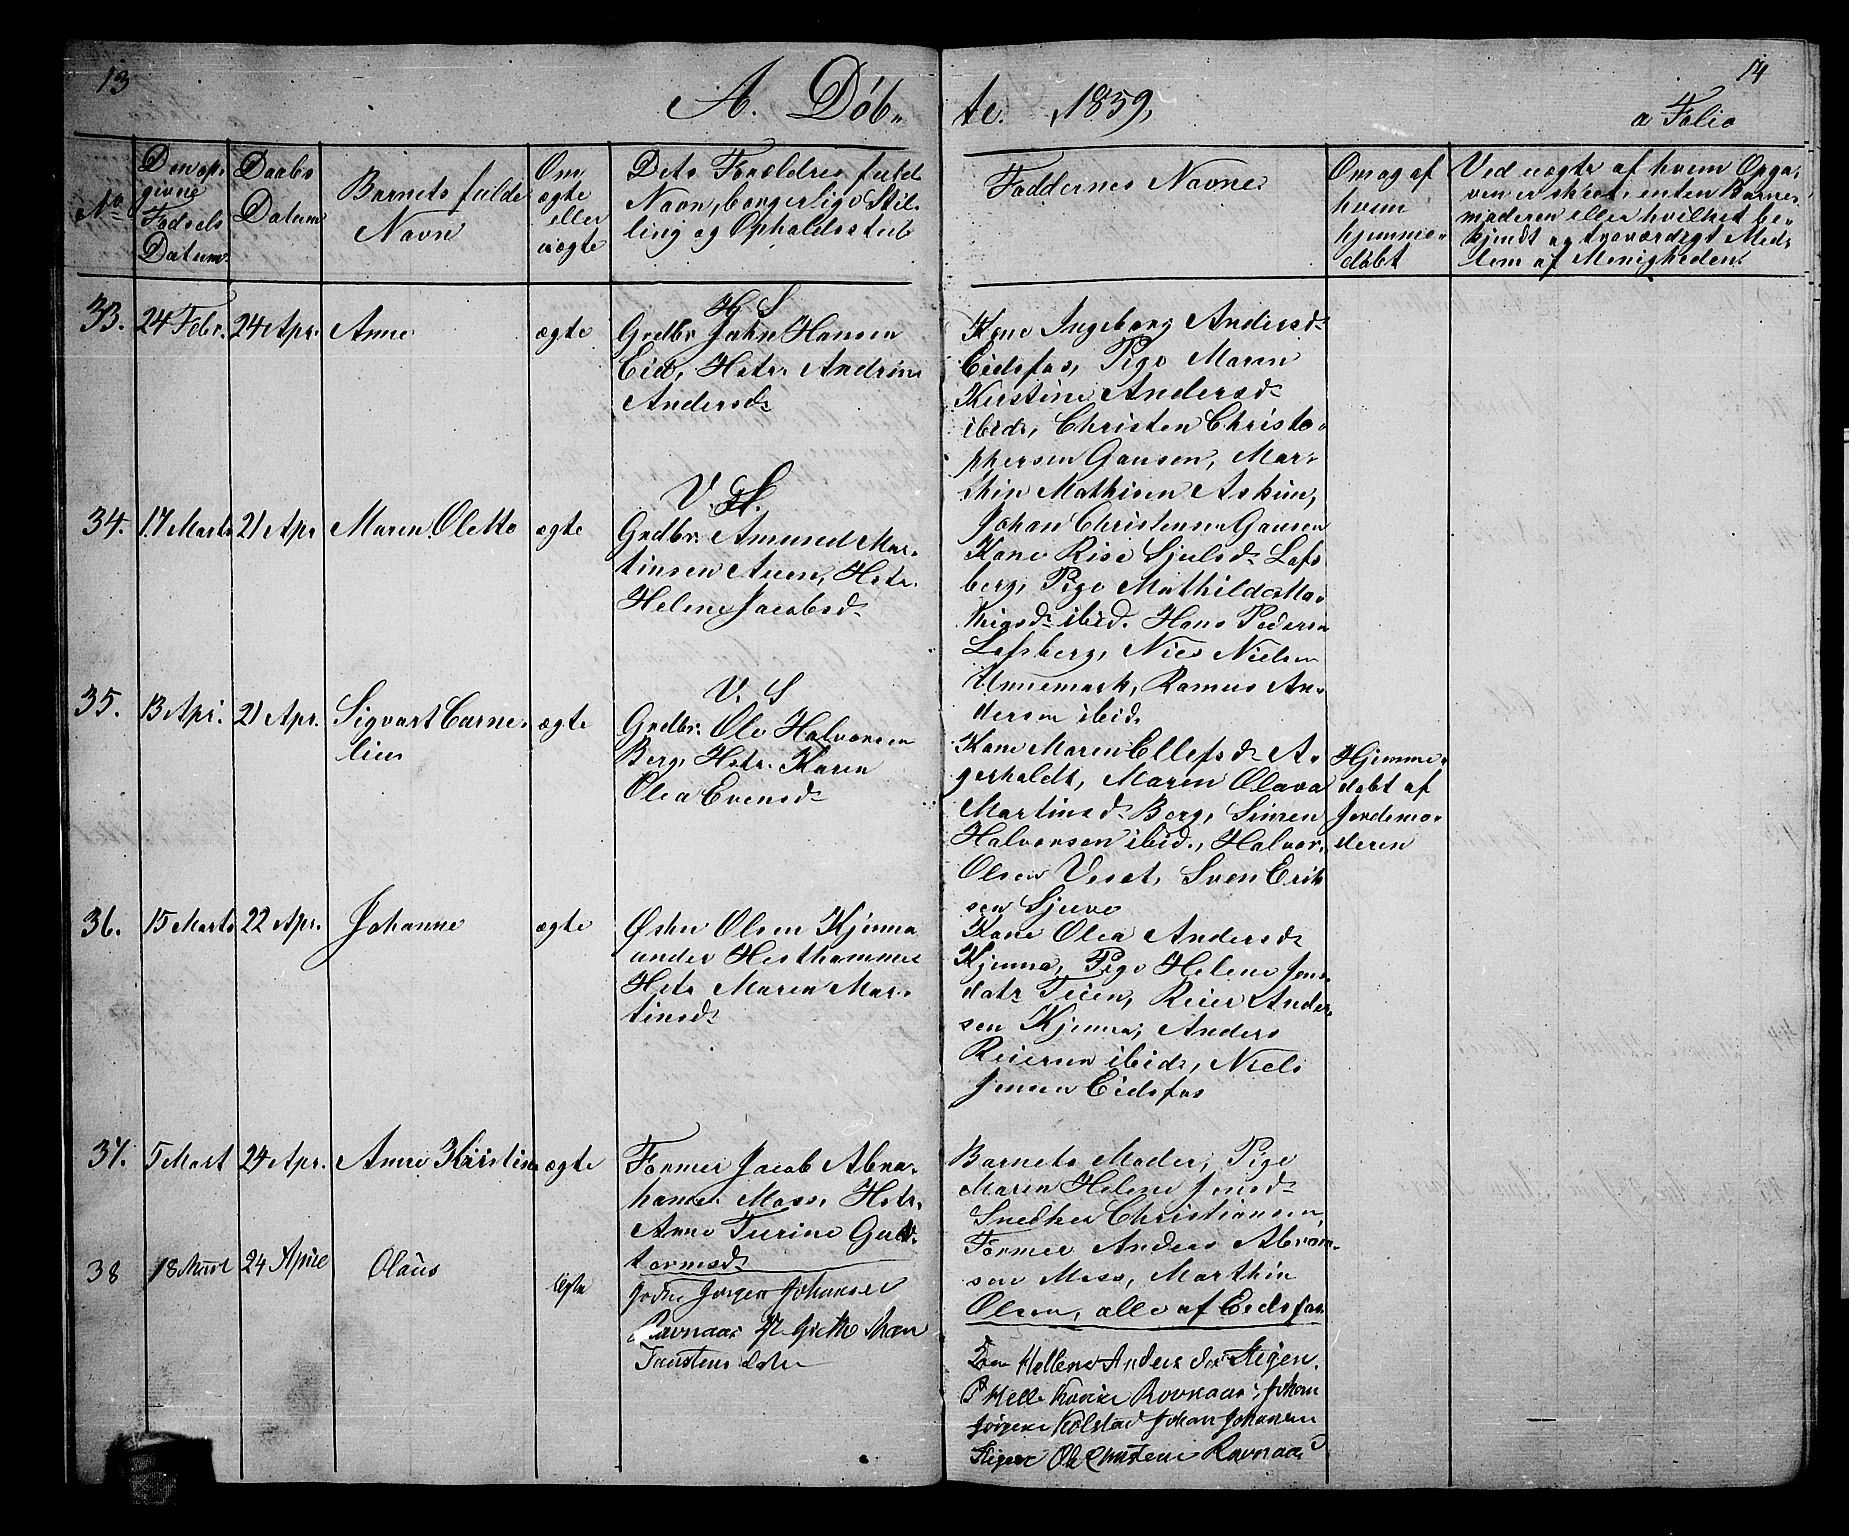 13
14
A. Døb„
te. 1859,
a Folio
No
Den op„
givne
Fødsels
Datum
Daabs
Datum
Barnets fulde
Navn
Om
ægte
eller
uægte
Dets Forældres fulde
Navn, borgerlige Stil„
ling og Opholdssted
Faddernes Navne
Om og af
hvem
hjemme„
døbt
Ved uægte af hvem Opga„
ven er skeet, enten Barne„
moderen eller hvilket be„
kjendt og troværdigt Med„
lem af Menigheden.
33. 24 Febr. 24 Apr. Anne ægte
H S
Grdbr John Hansen
Eid, Hstr. Andrine
Andersd.
Kone Ingeborg Andersd.
Eidsfos, Pige Maren
Kirstine Andersd.
ibid, Christen Christo„
phersen Gausen, Mar„
thin Mathisen Askim,
Johan Christensen Gausen
34. 17 Marts 21 Apr Maren Olette ægte
V. S.
Grdbr. Amund Mar„
tinsen Auen, Hstr.
Helene Jacobsd.
Kone Rise Sjulsd. Lofs
berg, Pige Mathilde Ma„
thiasd. ibid. Hans Pedersen
Lofsberg, Niels Nielsen
Unnemark, Rasmus An„
dersen ibid.
35. 13 Apr. 21 Apr. Sigvart Carne„
lius
ægte
V. S
Grdbr. Ole Halvorsen
Berg, Hstr. Karen
Olea Evensd.
Kone Maren Ellefsd. A„
gerholdt, Maren Olava
Martinsd. Berg, Simen
Halvorsen ibid., Halvor
Olsen Veset, Sven Erik
sen Sjuve
Hjemme„
døbt af
Jordemo„
deren
36. 15 Marts 22 Apr. Johanne ægte
Øster Olsen Kjenna
under Hesthammer
Hstr Maren Mar„
tinsd.
Kone Olea Andersd.
Kjenna, Pige Helene Jens
datr Teien, Reier Ander„
sen Kjenna, Anders
Reiersen ibid, Niels
Jensen Eidsfos
37. 5 Mart 24 Apr. Anne Kristine ægte
Former Jacob Abra„
hamsen Moss, Hstr.
Anne Turine Gul„
tormsd.
Barnets Moder, Pige
Maren Helene Jensd.
Snedker Christiansen,
Former Anders Abram„
sen Moss, Marthin
Olsen, alle af Eidsfos
38 18 Mart 24 April Olaus ægte
Jørgen Johansen
Ravnaas
Hellene Anders Stigen
P Helle Ravnaas, Johan
Jørgen Kolstad Johan Johansen
Stigen Ole Christensen Ravnaas